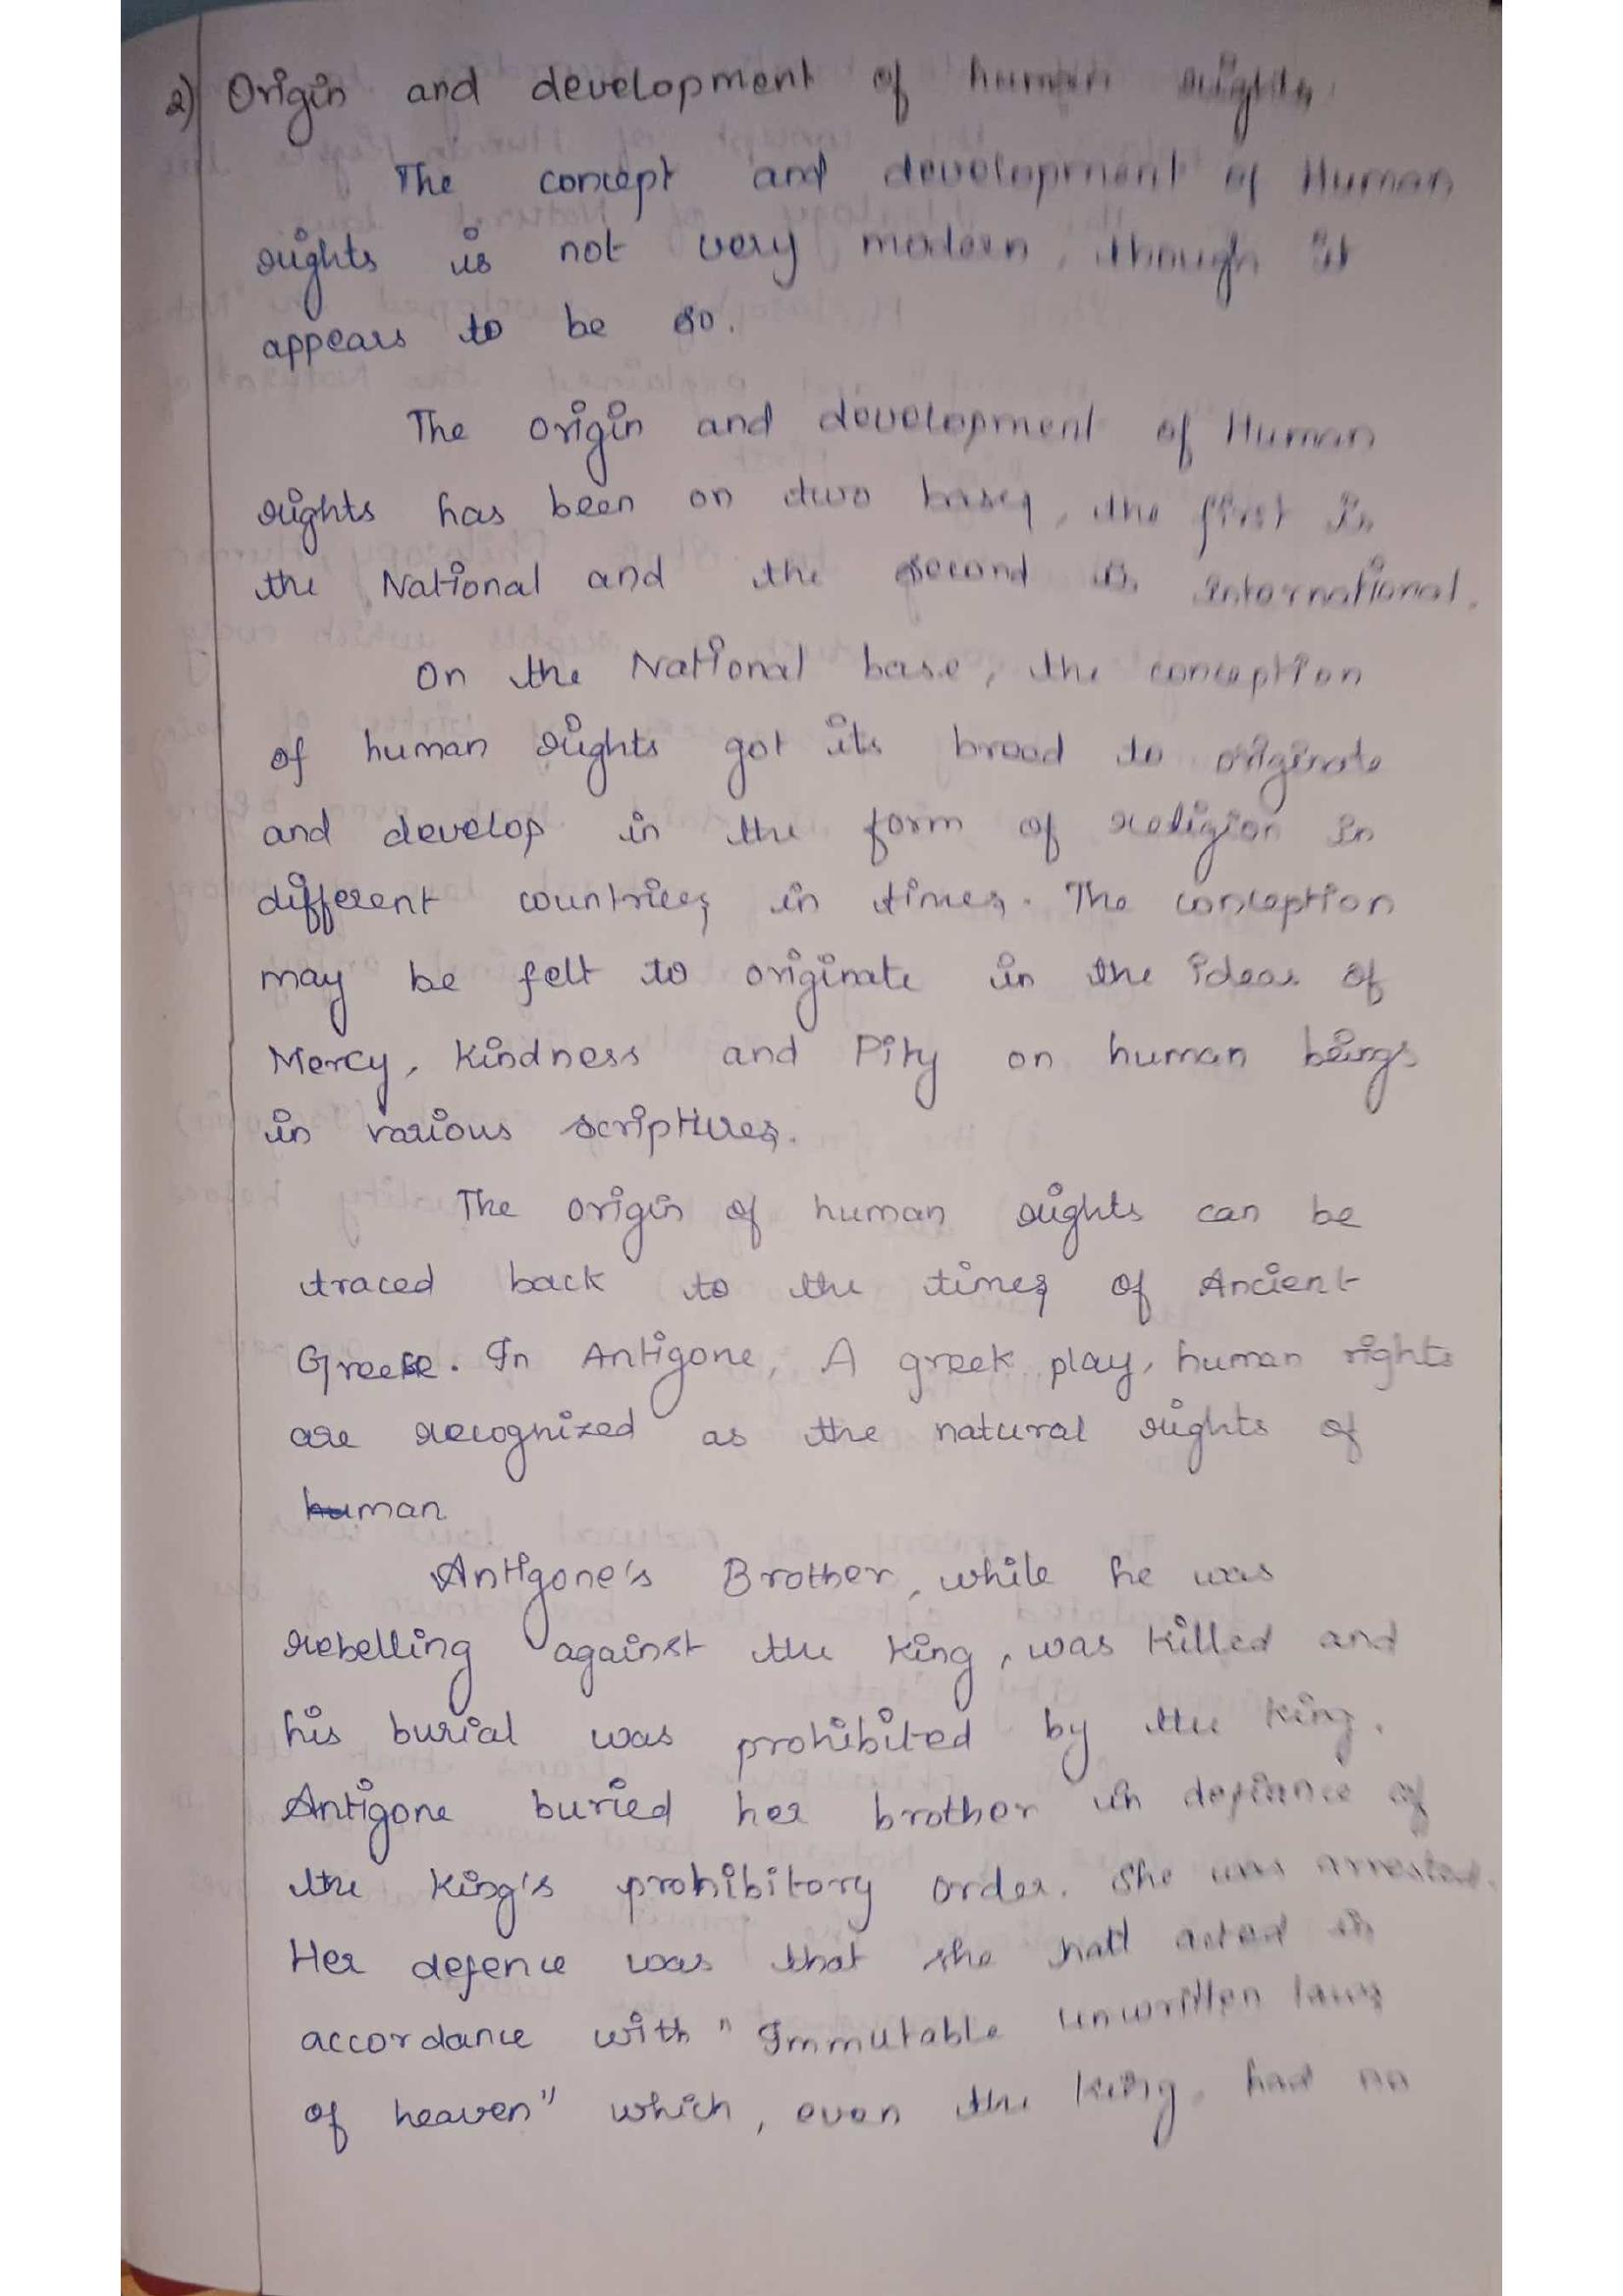 2) Origin and development of human rights.
The concept and development of Human
rights is not very modern, though it
appears to be so.
The origin and development of Human
rights has been on two bases, the first is
the National and the second is International.
On the National base, the conception
of human rights got its broad to originate
and develop in the form of religion in
different countries in times. The conception
may be felt to originate in the ideas of
Mercy, Kindness and Pity on human beings
in various scriptures.
The origin of human rights can be
traced back to the times of Ancient
Greece. In Antigone, A greek play, human rights
are recognized as the natural rights of
man
Antigone's Brother, while he was
rebelling against the king, was killed and
his burial was prohibited by the king.
Antigone buried her brother in defiance of
the king's prohibitory order. She was arrested.
Her defence was that she had acted in
accordance with "Immutable unwritten laws
of heaven" which, even the king, had no